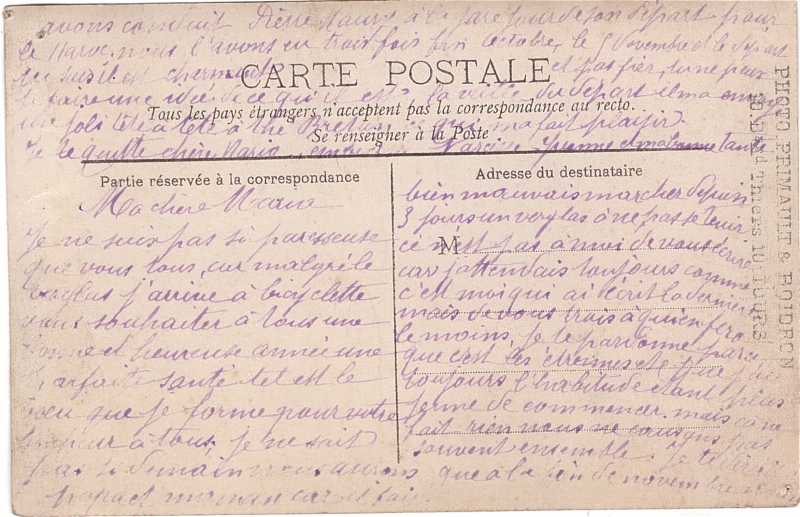 avons conduit Pierre Maury à la gare jour de son départ pour
le Maroc, nous l'avons eu trois fois fin octobre, le 5 novembre et le départ
il est charmant et pas fier, tu ne peux
te faire une idée de ce qu'il est la veille du départ il m'a
une jolie tête à tête à thé qui m'a fait plaisir.
Je te quitte chère Maria, Narcisse, Yvonne et ma bonne tante
CARTE POSTALE
Tous les pays étrangers n'acceptent pas la correspondance au recto.
Se renseigner à la Poste
Partie réservée à la correspondance
Ma chère Maria
Je ne suis pas si paresseuse
que vous tous, car malgré le
verglas j'arrive à bicyclette
vous souhaiter à tous une
bonne et heureuse année une
parfaite santé tel est le
voeu que je forme pour votre
bonheur à tous, je ne sait
pas si demain nous aurons
papa et maman car il fait
Adresse du destinataire
M
bien mauvais marcher depuis
3 jours un verglas à ne pas se tenir
ce n'est pas à moi de vous écrire
car j'attendais toujours comme
c'est moi qui ai écrit la dernière
mais de vous trois à qui en fera
le moins, je te pardonne parce
que c'est les étrennes et que j'ai
toujours l'habitude étant plus
jeune de commencer. mais ça ne
fait rien nous ne causons pas
souvent ensemble. Je te dirai
que à la fin de novembre nous
PHOTO PRIMAULT & BOIDRON
Thiers 10 TOURS